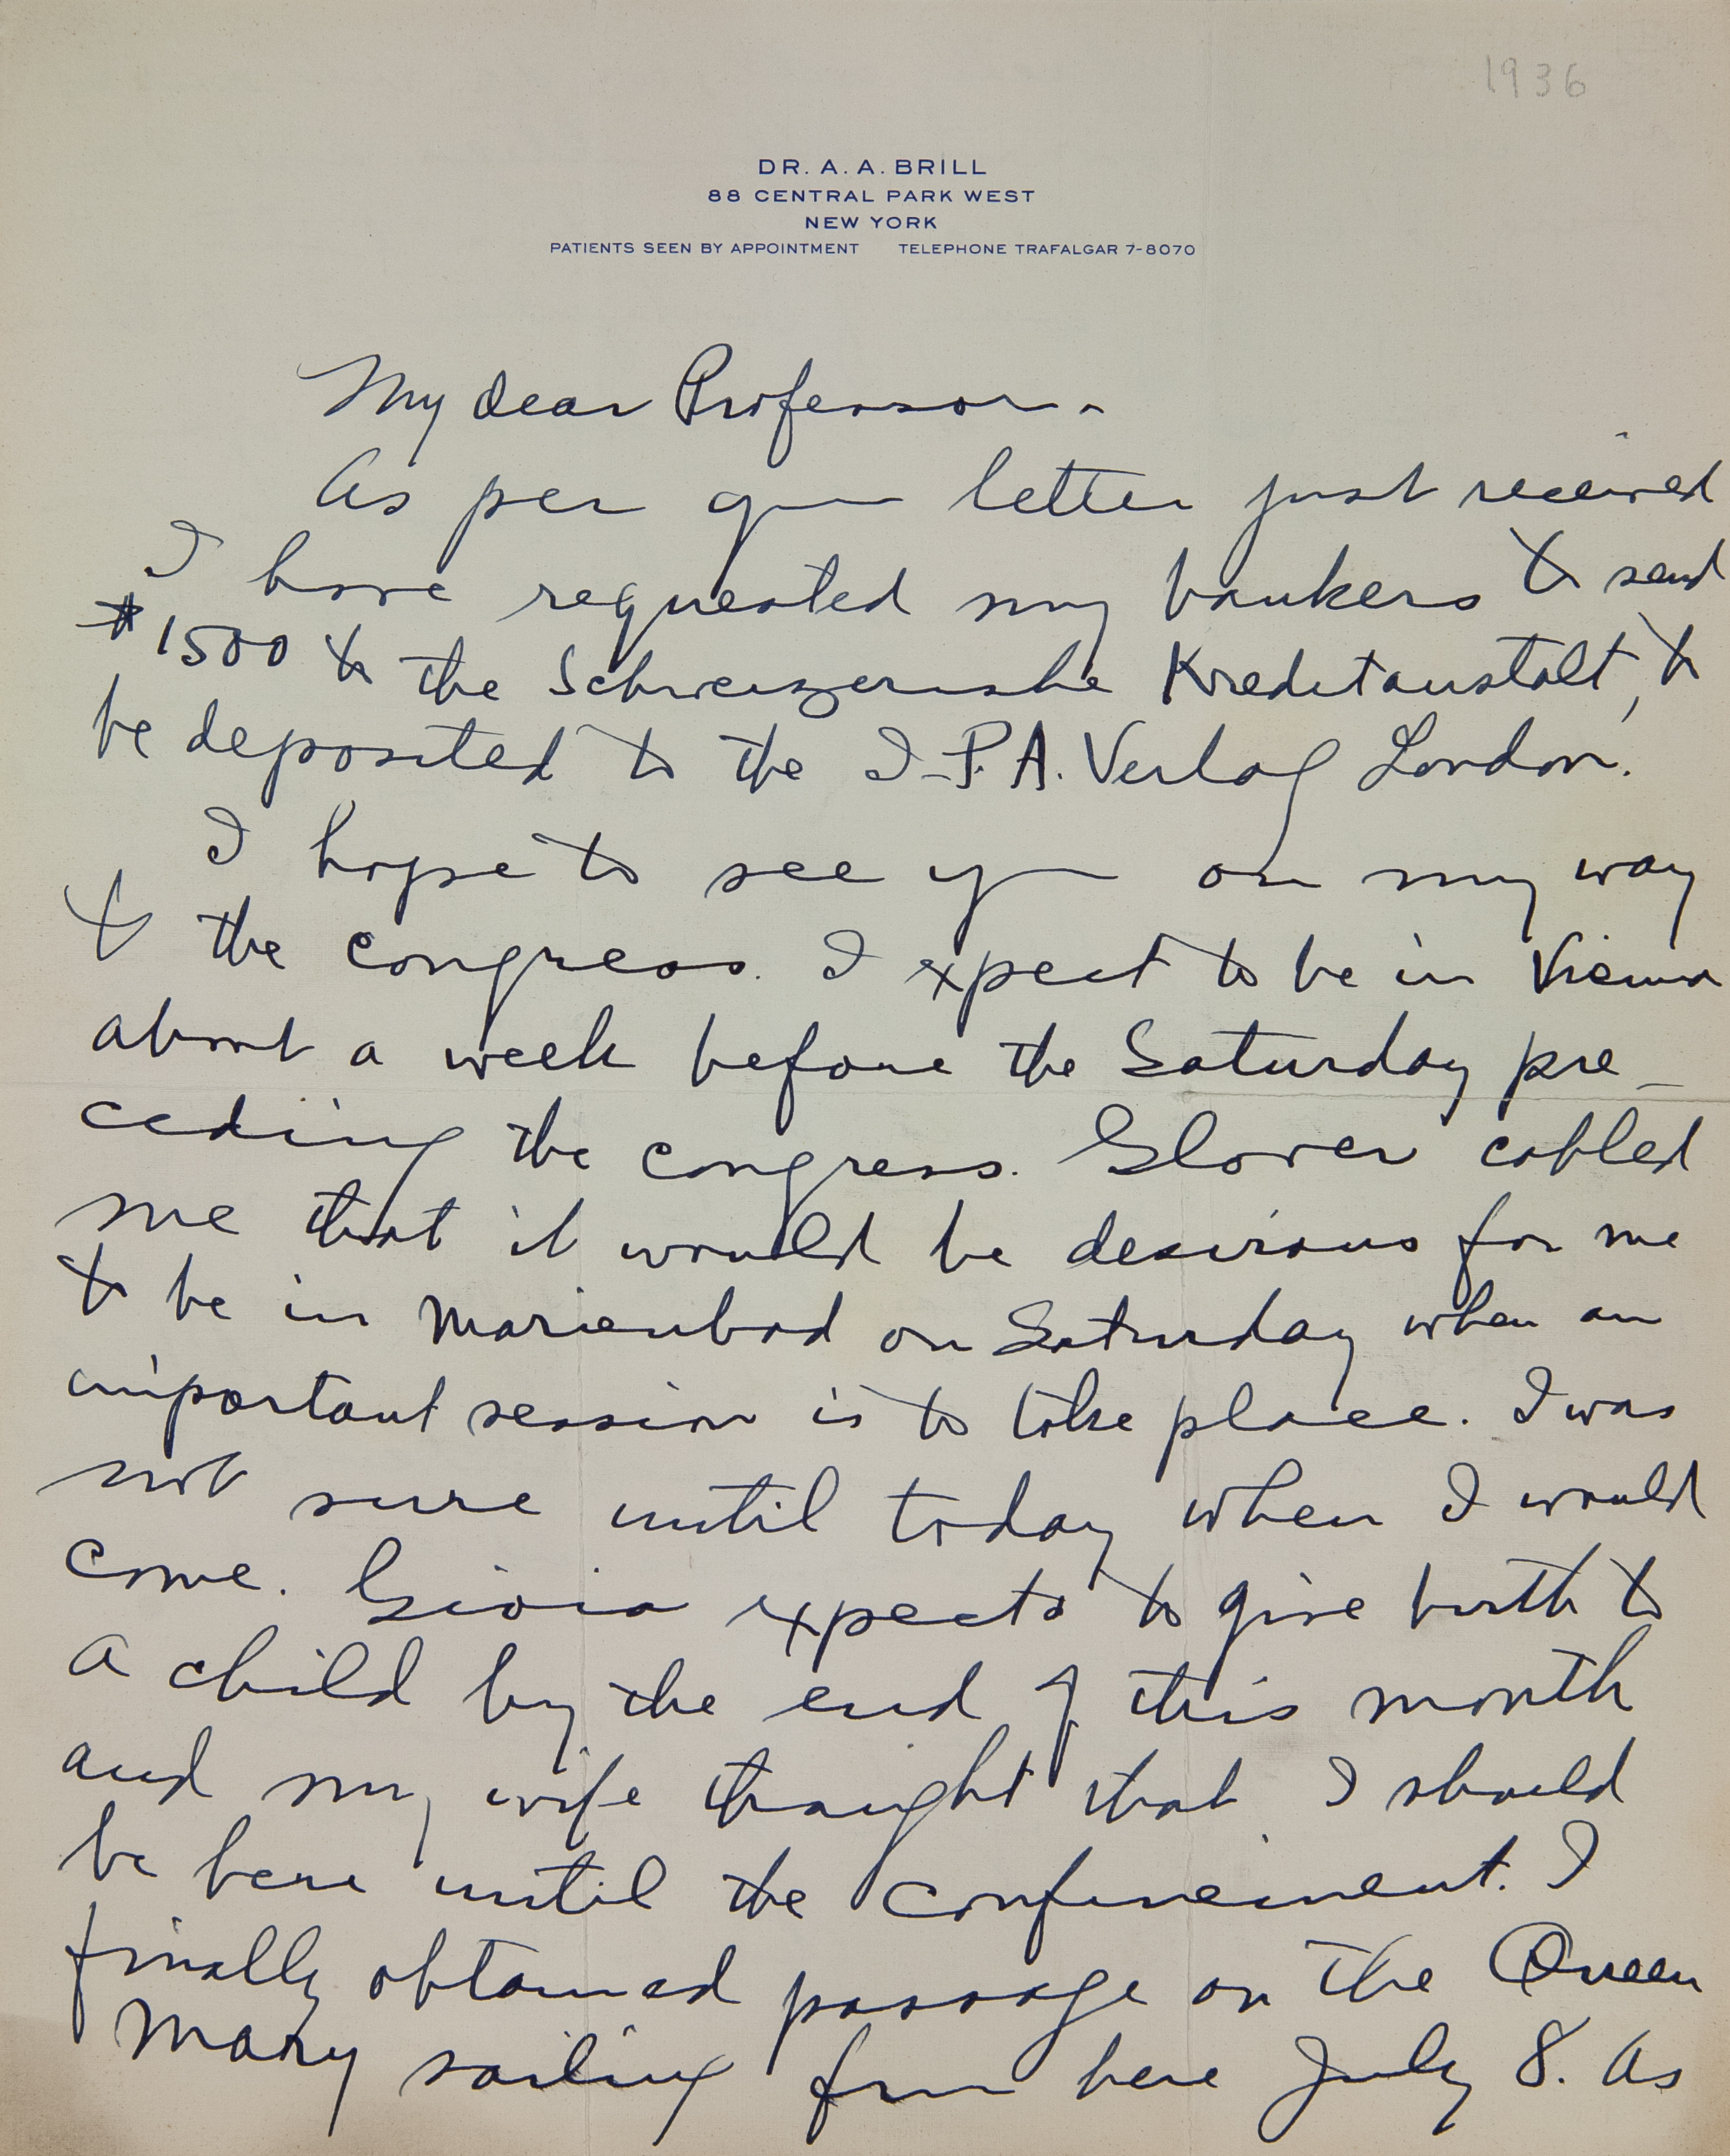 1936
DR. A. A. BRILL
88 CENTRAL PARK WEST
NEW YORK
PATIENTS SEEN BY APPOINTMENT TELEPHONE TRAFALGAR 7-8070
My dear Professor -
As per your letter just received
I have requested my bankers to send
$1500 to the Schweizerische Kreditanstalt, to
be deposited to the I.P.A. Verlag London.
I hope to see you on my way
to the congress. I expect to be in Vienna
about a week before the Saturday pre-
ceding the congress. Glover cabled
me that it would be desirous for me
to be in Marienbad on Saturday when an
important session is to take place. I was
not sure until today when I would
come. Gioia expects to give birth to
a child by the end of this month
and my wife thought that I should
be here until the confinement. I
finally obtained passage on the Queen
Mary sailing from here July 8. As